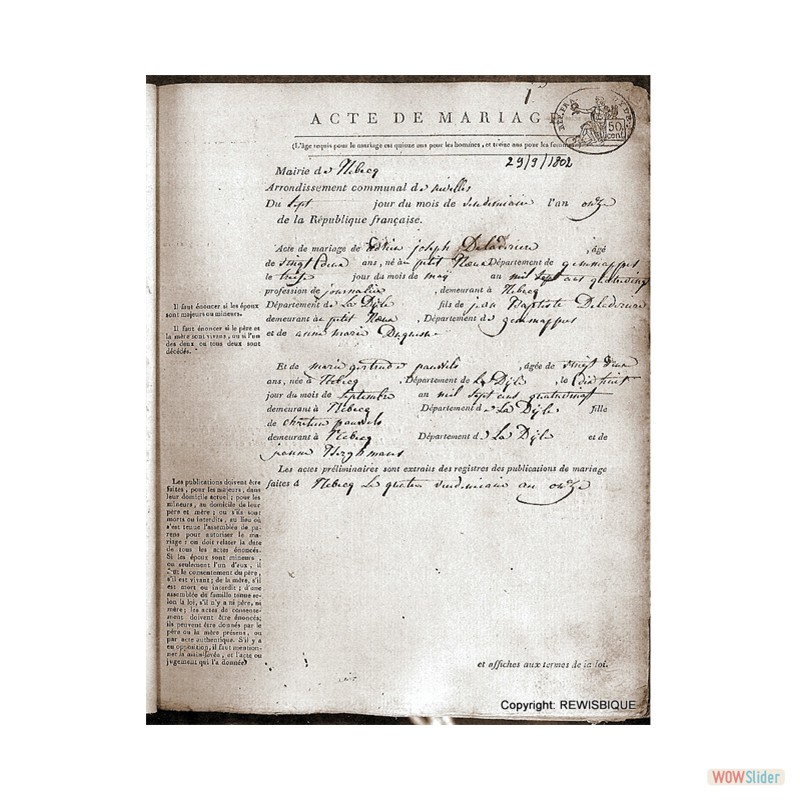 ACTE DE MARIAGE
50 cent
(L'âge requis pour le mariage est quinze ans pour les hommes, et treize ans pour les femmes)
29/9/1802
Mairie de Rebecq
Arrondissement communal de nivelles
Du Sept jour du mois de vendemiaire l'an onze
de la République française.
Acte de mariage de joseph , âgé
de vingt deux ans, né à petit Département de gemmappes
le treize jour du mois de may an mil sept cent quatre vingt
profession de journalier , demeurant à Rebecq
Département de La Dijle fils de jean Baptiste
demeurant à petit , Département de gemmappes
et de anne marie
Il faut énoncer si les époux
sont majeurs ou mineurs.
Il faut énoncer si le père et
la mère sont vivans, ou si l'un
des deux ou tous deux sont
décédés.
Et de marie gertrude pauwels , âgée de vingt deux
ans, née à Rebecq , Département de La Dijle , le dix huit
jour du mois de septembre an mil sept cent quatrevingt
demeurant à Rebecq , Département de La Dijle fille
de chretien pauwels
demeurant à Rebecq Département de La Dijle et de
jeanne Berghmans
Les actes préliminaires sont extraits des registres des publications de mariage
faites à Rebecq Le quatre vendemiaire an onze
Les publications doivent être
faites, pour les majeurs, dans
leur domicile actuel; pour les
mineurs, au domicile de leur
père et mère; ou s'ils sont
morts ou interdits, au lieu où
s'est tenue l'assemblée de pa-
rens pour autoriser le ma-
riage: on doit relater la date
de tous les actes énoncés.
Si les époux sont mineurs,
ou seulement l'un d'eux, il
faut le consentement du père,
s'il est vivant; de la mère, s'il
est mort ou interdit; d'une
assemblée de famille tenue se-
lon la loi, s'il n'y a ni père, ni
mère; les actes de consente-
ment doivent être énoncés;
ils peuvent être donnés par le
père ou la mère présens, ou
par acte authentique. S'il y a
eu opposition, il faut mention-
ner la main-levée, et l'acte ou
jugement qui l'a donnée)
et affiches aux termes de la loi.
Copyright: REWISBIQUE
WOWSlider